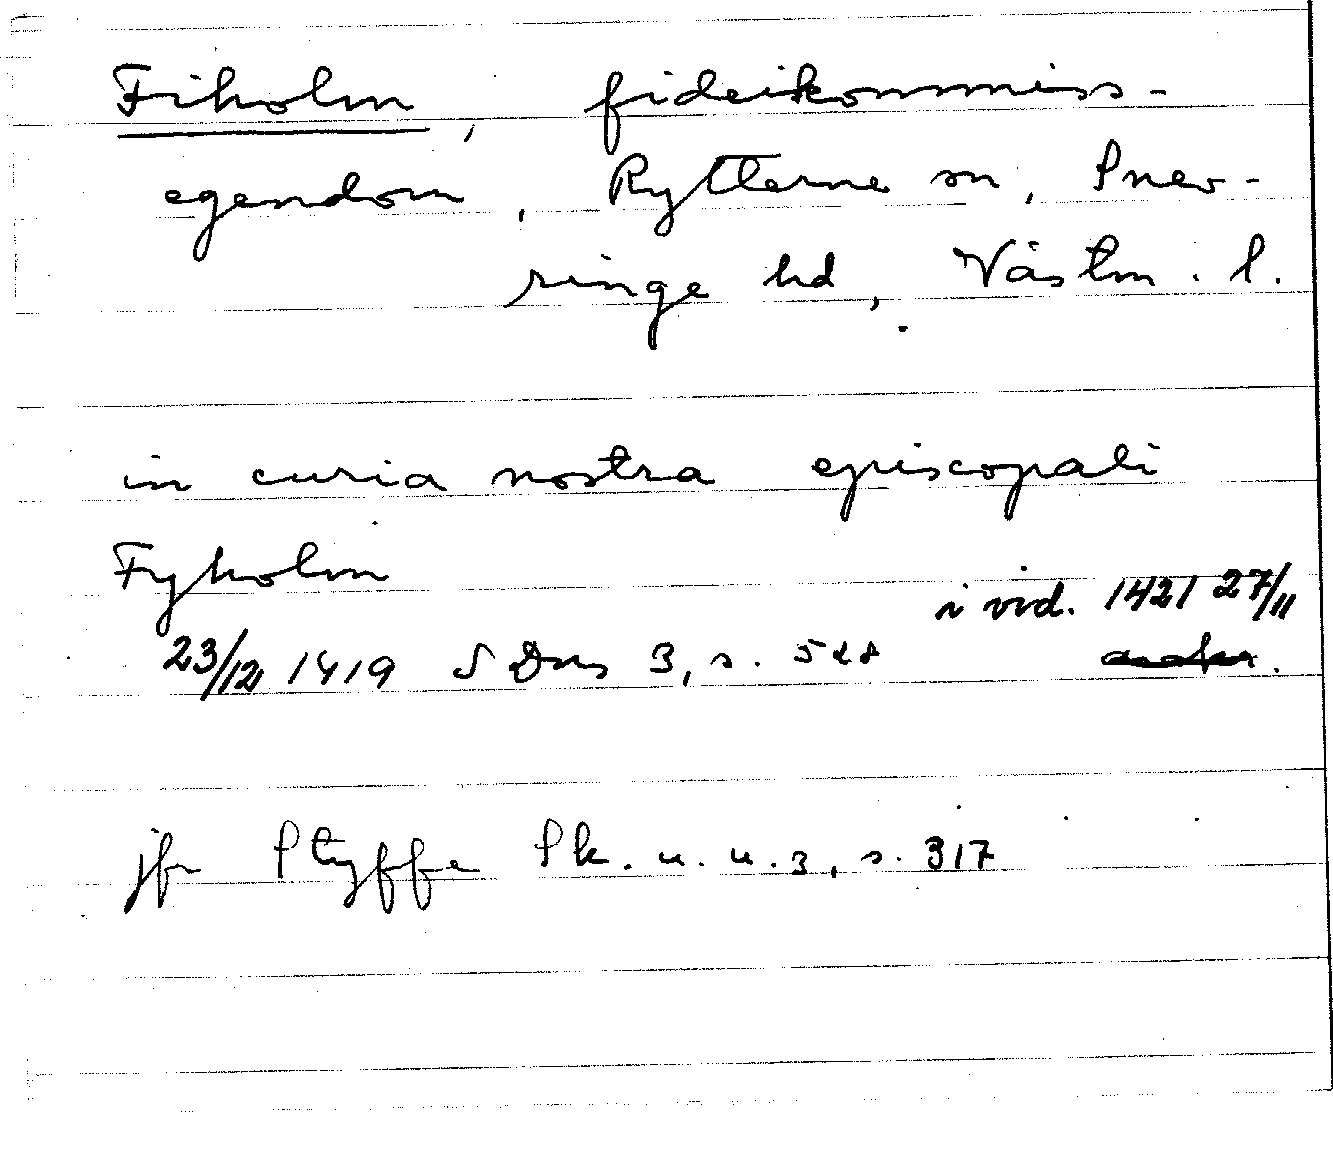 Fiholm, fideikommiss-
egendom, Rytterne sn, Snev-
ringe hd, Västm. l.
in curia nostra episcopali
Fyholm
i vid. 1421 27/11
23/12 1419 SDns 3, s. 528
jfr Styffe Sk. u. u. 3, s. 317